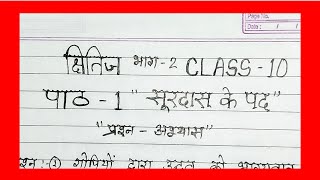 Page No.
Date
क्षितिज भाग-2 CLASS-10
पाठ-1 "सूरदास के पद"
"प्रश्न-अभ्यास"
गोपियों द्वारा उद्धव को भाग्यवान